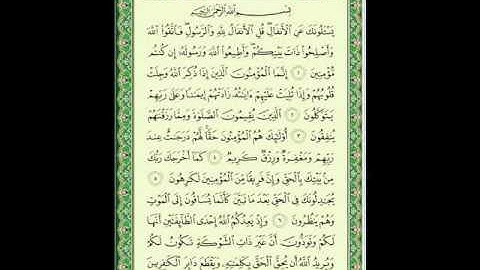 بِسْمِ اللَّهِ الرَّحْمَٰنِ الرَّحِيمِ
يَسْـَٔلُونَكَ عَنِ الْأَنفَالِ قُلِ الْأَنفَالُ لِلَّهِ وَالرَّسُولِ فَاتَّقُوا اللَّهَ
وَأَصْلِحُوا ذَاتَ بَيْنِكُمْ وَأَطِيعُوا اللَّهَ وَرَسُولَهُ إِن كُنتُم
مُّؤْمِنِينَ ١ إِنَّمَا الْمُؤْمِنُونَ الَّذِينَ إِذَا ذُكِرَ اللَّهُ وَجِلَتْ
قُلُوبُهُمْ وَإِذَا تُلِيَتْ عَلَيْهِمْ ءَايَٰتُهُ زَادَتْهُمْ إِيمَٰنًا وَعَلَىٰ رَبِّهِمْ
يَتَوَكَّلُونَ ٢ الَّذِينَ يُقِيمُونَ الصَّلَوٰةَ وَمِمَّا رَزَقْنَٰهُمْ
يُنفِقُونَ ٣ أُولَٰٓئِكَ هُمُ الْمُؤْمِنُونَ حَقًّا لَّهُمْ دَرَجَٰتٌ عِندَ
رَبِّهِمْ وَمَغْفِرَةٌ وَرِزْقٌ كَرِيمٌ ٤ كَمَا أَخْرَجَكَ رَبُّكَ
مِنۢ بَيْتِكَ بِالْحَقِّ وَإِنَّ فَرِيقًا مِّنَ الْمُؤْمِنِينَ لَكَٰرِهُونَ ٥
يُجَٰدِلُونَكَ فِي الْحَقِّ بَعْدَ مَا تَبَيَّنَ كَأَنَّمَا يُسَاقُونَ إِلَى الْمَوْتِ
وَهُمْ يَنظُرُونَ ٦ وَإِذْ يَعِدُكُمُ اللَّهُ إِحْدَى الطَّائِفَتَيْنِ أَنَّهَا
لَكُمْ وَتَوَدُّونَ أَنَّ غَيْرَ ذَاتِ الشَّوْكَةِ تَكُونُ لَكُمْ
وَيُرِيدُ اللَّهُ أَن يُحِقَّ الْحَقَّ بِكَلِمَٰتِهِ وَيَقْطَعَ دَابِرَ الْكَٰفِرِينَ